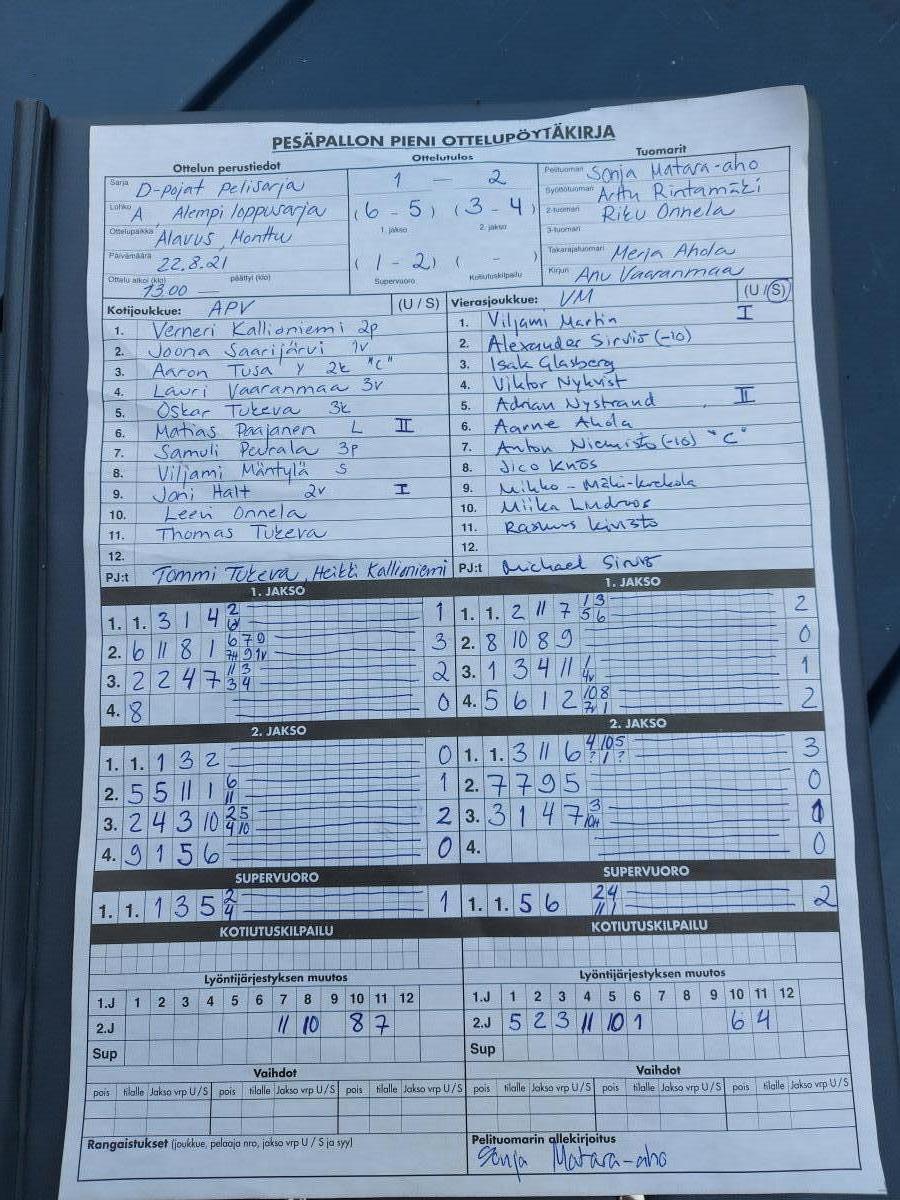 PESÄPALLON PIENI OTTELUPÖYTÄKIRJA
Ottelun perustiedot Ottelutulos Tuomarit
Sarja D-pojat Pelisarja
Lohko A, Alempi loppusarja
Ottelupaikka Alavus, Monttu
Päivämäärä 22.8.21
Ottelu alkoi (klo) 13.00 päättyi (klo)
1 – 2
(6 - 5) (3 - 4)
1. jakso 2. jakso
(1 - 2) ( - )
Supervuoro Kotiutuskilpailu
Pelituomari Sonja Matara-aho
Syöttötuomari Arttu Rintamäki
2-tuomari Riku Onnela
3-tuomari
Takarajatuomari Merja Ahola
Kirjuri Anu Vaaranmaa
Kotijoukkue: APV (U / S)
1. Verneri Kallioniemi 2p
2. Joona Saarijärvi 1v
3. Aaron Tusa Y 2k "C"
4. Lauri Vaaranmaa 3v
5. Oskar Tukeva 3k
6. Matias Paajanen L II
7. Samuli Peurala 3p
8. Viljami Mäntylä S
9. Joni Halt 2v I
10. Leevi Onnela
11. Thomas Tukeva
12.
PJ:t Tommi Tukeva, Heikki Kallioniemi
Vierasjoukkue: VM (U / S)
1. Viljami Martin I
2. Alexander Sirviö (-10)
3. Isak Glasberg
4. Viktor Nykvist
5. Adrian Nystrand II
6. Aarne Ahola
7. Anton Niemistö (-10) "C"
8. Jico Knös
9. Mikko
10. Miika Lindroos
11. Rasmus Kivistö
12.
PJ:t Michael Sirviö
1. JAKSO
1. 1. 3 1 4 2 1
2. 6 11 8 1 6 7 9 3
3. 2 2 4 7 11 3 3 4 2
4. 8 0
1. JAKSO
1. 1. 2 11 7 1 3 5 6 2
2. 8 10 8 9 0
3. 1 3 4 11 1 4v 1
4. 5 6 1 2 10 8 2
2. JAKSO
1. 1. 1 3 2 0
2. 5 5 11 1 6 11 1
3. 2 4 3 10 2 5 4 10 2
4. 9 1 5 6 0
2. JAKSO
1. 1. 3 11 6 4 10 5 ? 1 ? 3
2. 7 7 9 5 0
3. 3 1 4 7 3 1
4. 0
SUPERVUORO
1. 1. 1 3 5 2 4 1
SUPERVUORO
1. 1. 5 6 2 4 11 1 2
KOTIUTUSKILPAILU
KOTIUTUSKILPAILU
Lyöntijärjestyksen muutos
1.J 1 2 3 4 5 6 7 8 9 10 11 12
2.J 11 10 8 7
Sup
Lyöntijärjestyksen muutos
1.J 1 2 3 4 5 6 7 8 9 10 11 12
2.J 5 2 3 11 10 1 6 4
Sup
Vaihdot
pois tilalle Jakso vrp U / S pois tilalle Jakso vrp U / S pois tilalle Jakso vrp U / S
Vaihdot
pois tilalle Jakso vrp U / S pois tilalle Jakso vrp U / S pois tilalle Jakso vrp U / S
Rangaistukset (joukkue, pelaaja nro, jakso vrp U / S ja syy)
Pelituomarin allekirjoitus
Sonja Matara-aho